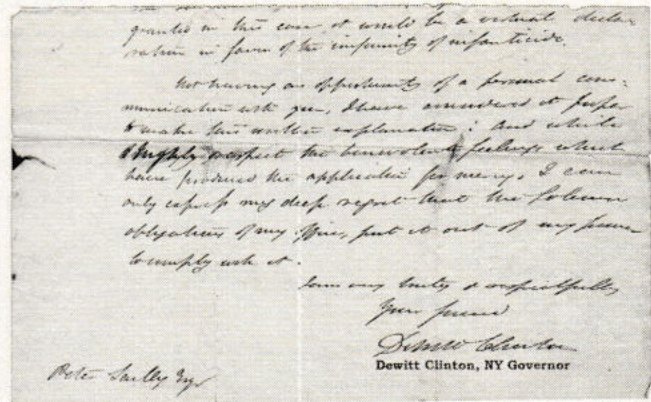 granted in this case it would be a virtual decla-
ration in favor of the impunity of infanticide.
Not having an opportunity of a personal com-
munication with you, I have considered it proper
to make this written explanation: and while
I highly respect the benevolent feelings which
have produced the application for mercy, I can
only express my deep regret that the solemn
obligations of my office, put it out of my power
to comply with it.
I am very truly & respectfully
Your friend
DeWitt Clinton
Dewitt Clinton, NY Governor
Peter Sailly Esqr